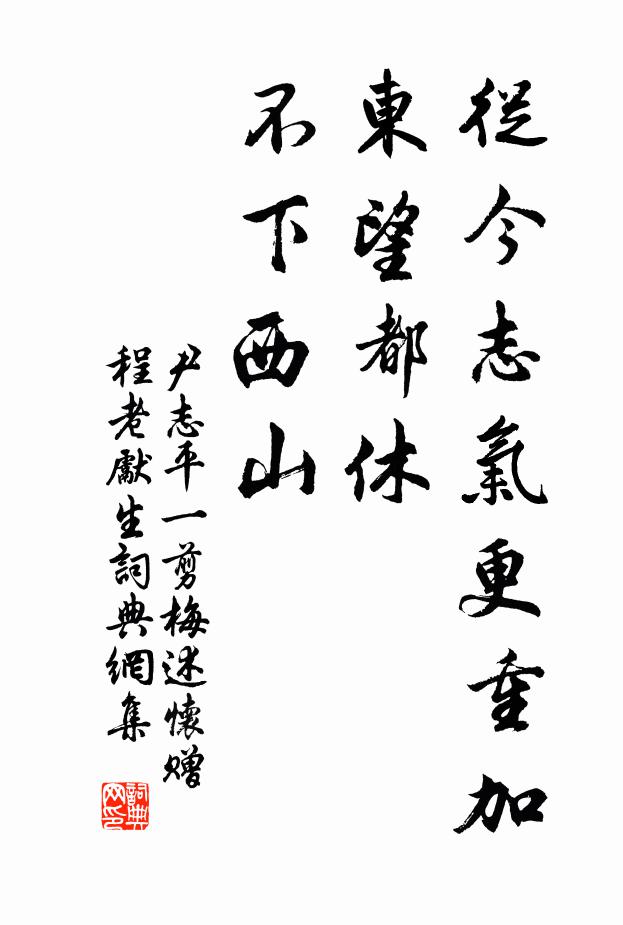 從今志氣更重加
東望都休
不下西山
尹志平一剪梅述懷赠
程老獻生詞典網集
詞典
网印